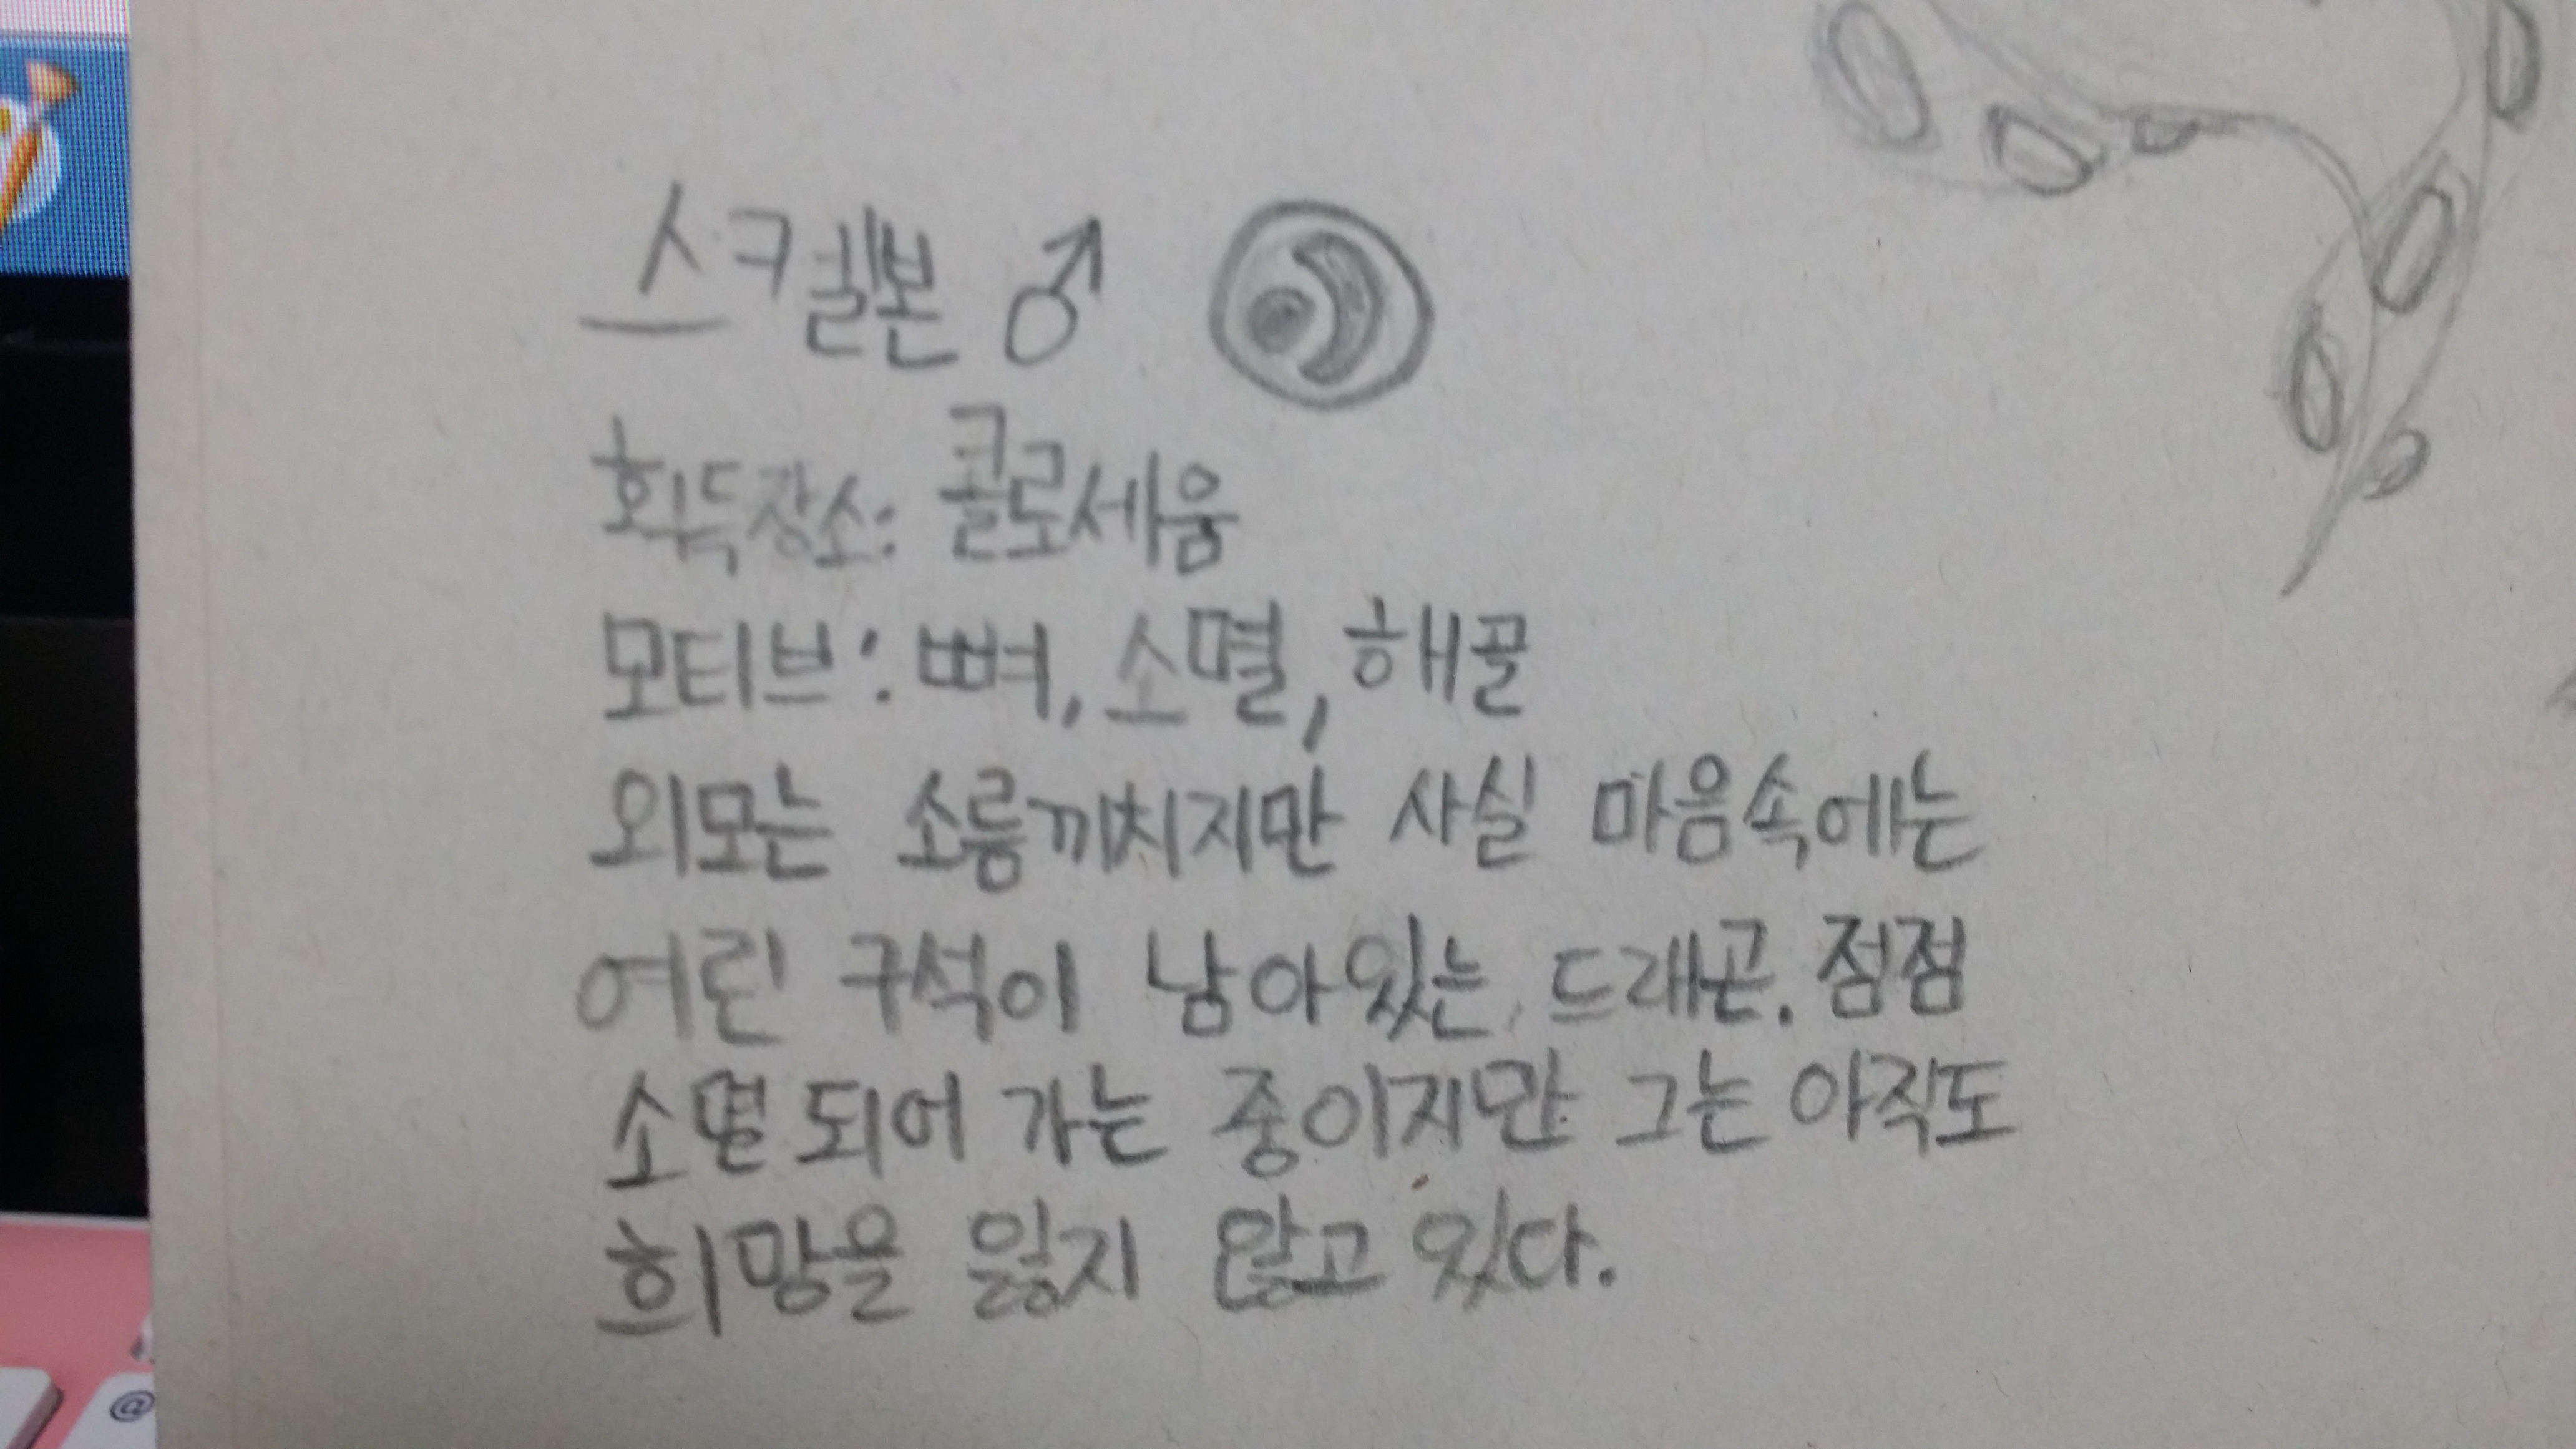 스켈본 ♂
획득장소: 콜로세움
모티브: 뼈, 소멸, 해골
외모는 소름끼치지만 사실 마음속에는
어린 구석이 남아있는 드래곤. 점점
소멸되어 가는 중이지만 그는 아직도
희망을 잃지 않고 있다.
@